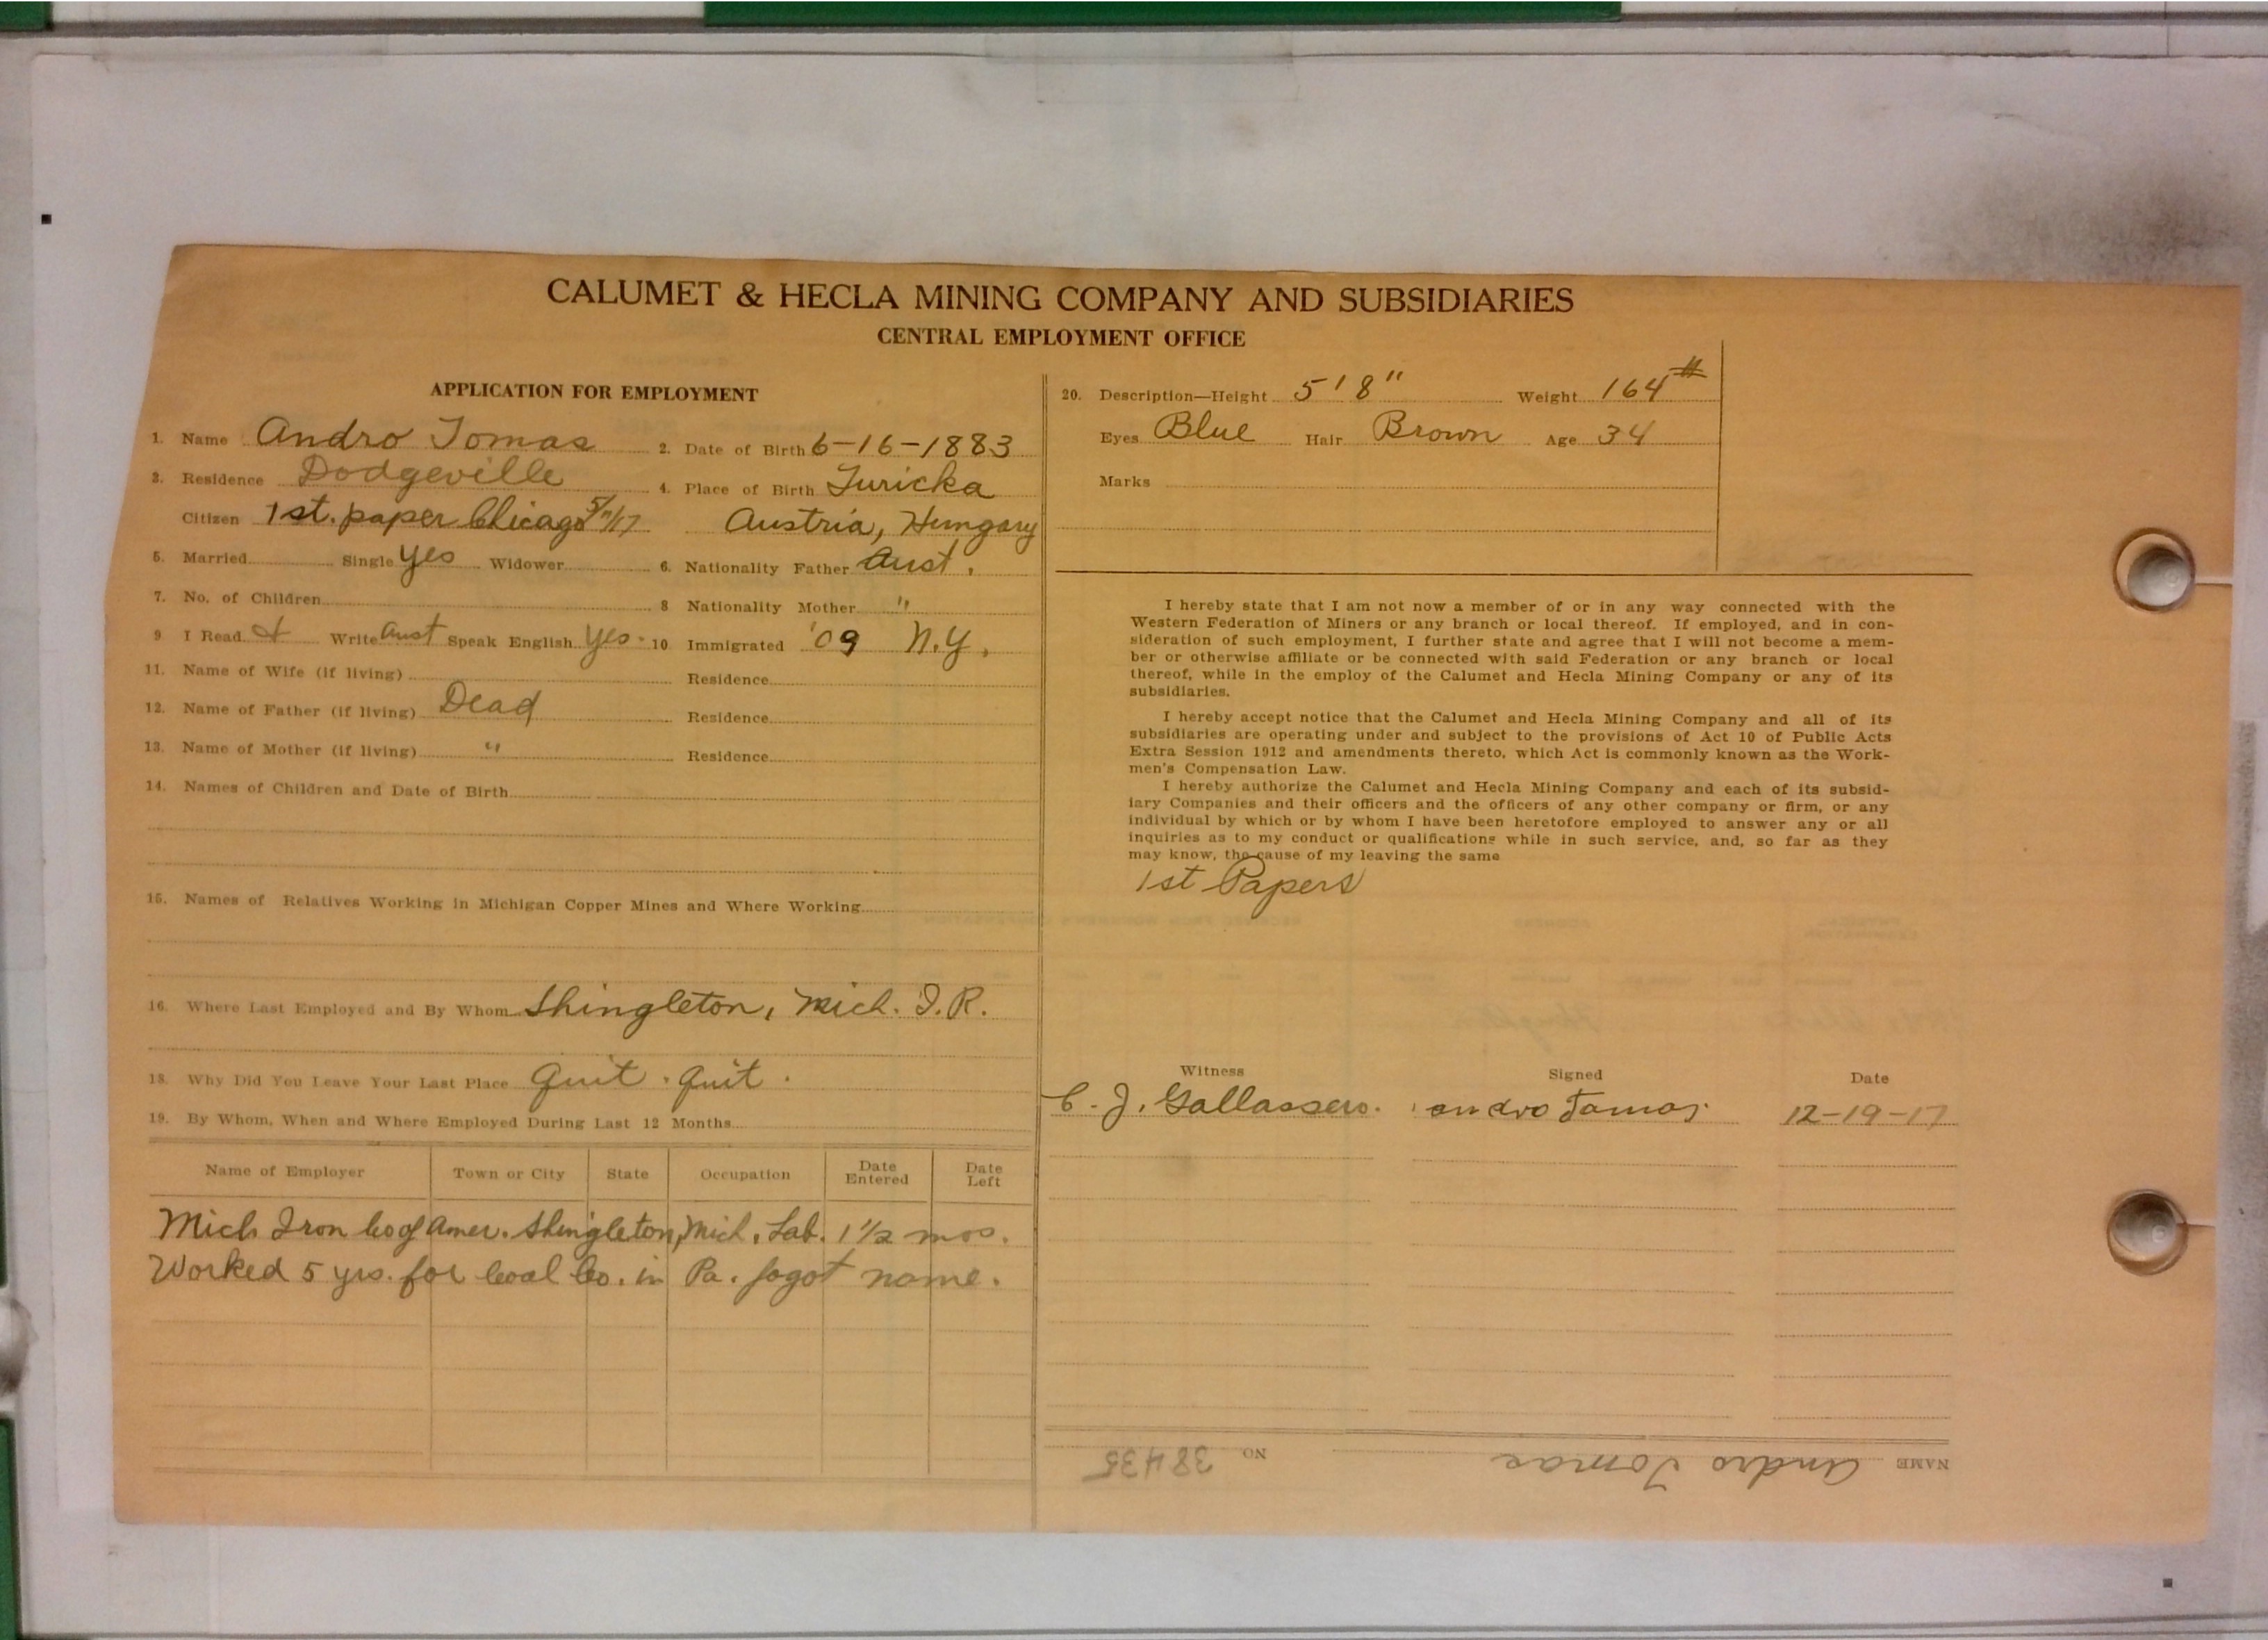 CALUMET & HECLA MINING COMPANY AND SUBSIDIARIES
CENTRAL EMPLOYMENT OFFICE
APPLICATION FOR EMPLOYMENT
1. Name Andro Tomas 2. Date of Birth 6-16-1883
3. Residence Dodgeville 4. Place of Birth Turicka
Citizen 1st. paper Chicago 17 Austria, Hungary
5. Married Single yes Widower 6. Nationality Father Aust.
7. No. of Children 8 Nationality Mother "
9. I Read & Write Aust Speak English yes. 10 Immigrated '09 N.Y.
11. Name of Wife (if living) Residence
12. Name of Father (if living) Dead Residence
13. Name of Mother (if living) " Residence
14. Names of Children and Date of Birth
15. Names of Relatives Working in Michigan Copper Mines and Where Working
16. Where Last Employed and By Whom Shingleton, Mich. I.R.
18. Why Did You Leave Your Last Place Quit. Quit.
19. By Whom, When and Where Employed During Last 12 Months
Name of Employer Town or City State Occupation Date Entered Date Left
Mich Iron Co of Amer. Shingleton, Mich. Lab. 1 1/2 mos.
Worked 5 yrs. for Coal Co. in Pa. fogot name.
20. Description—Height 5' 8" Weight 164 #
Eyes Blue Hair Brown Age 34
Marks
I hereby state that I am not now a member of or in any way connected with the
Western Federation of Miners or any branch or local thereof. If employed, and in con-
sideration of such employment, I further state and agree that I will not become a mem-
ber or otherwise affiliate or be connected with said Federation or any branch or local
thereof, while in the employ of the Calumet and Hecla Mining Company or any of its
subsidiaries.
I hereby accept notice that the Calumet and Hecla Mining Company and all of its
subsidiaries are operating under and subject to the provisions of Act 10 of Public Acts
Extra Session 1912 and amendments thereto, which Act is commonly known as the Work-
men's Compensation Law.
I hereby authorize the Calumet and Hecla Mining Company and each of its subsid-
iary Companies and their officers and the officers of any other company or firm, or any
individual by which or by whom I have been heretofore employed to answer any or all
inquiries as to my conduct or qualifications while in such service, and, so far as they
may know, the cause of my leaving the same
1st Papers
Witness Signed Date
C. J. Gallassero. andro Tomas 12-19-17
NAME Andro Tomas NO 38435